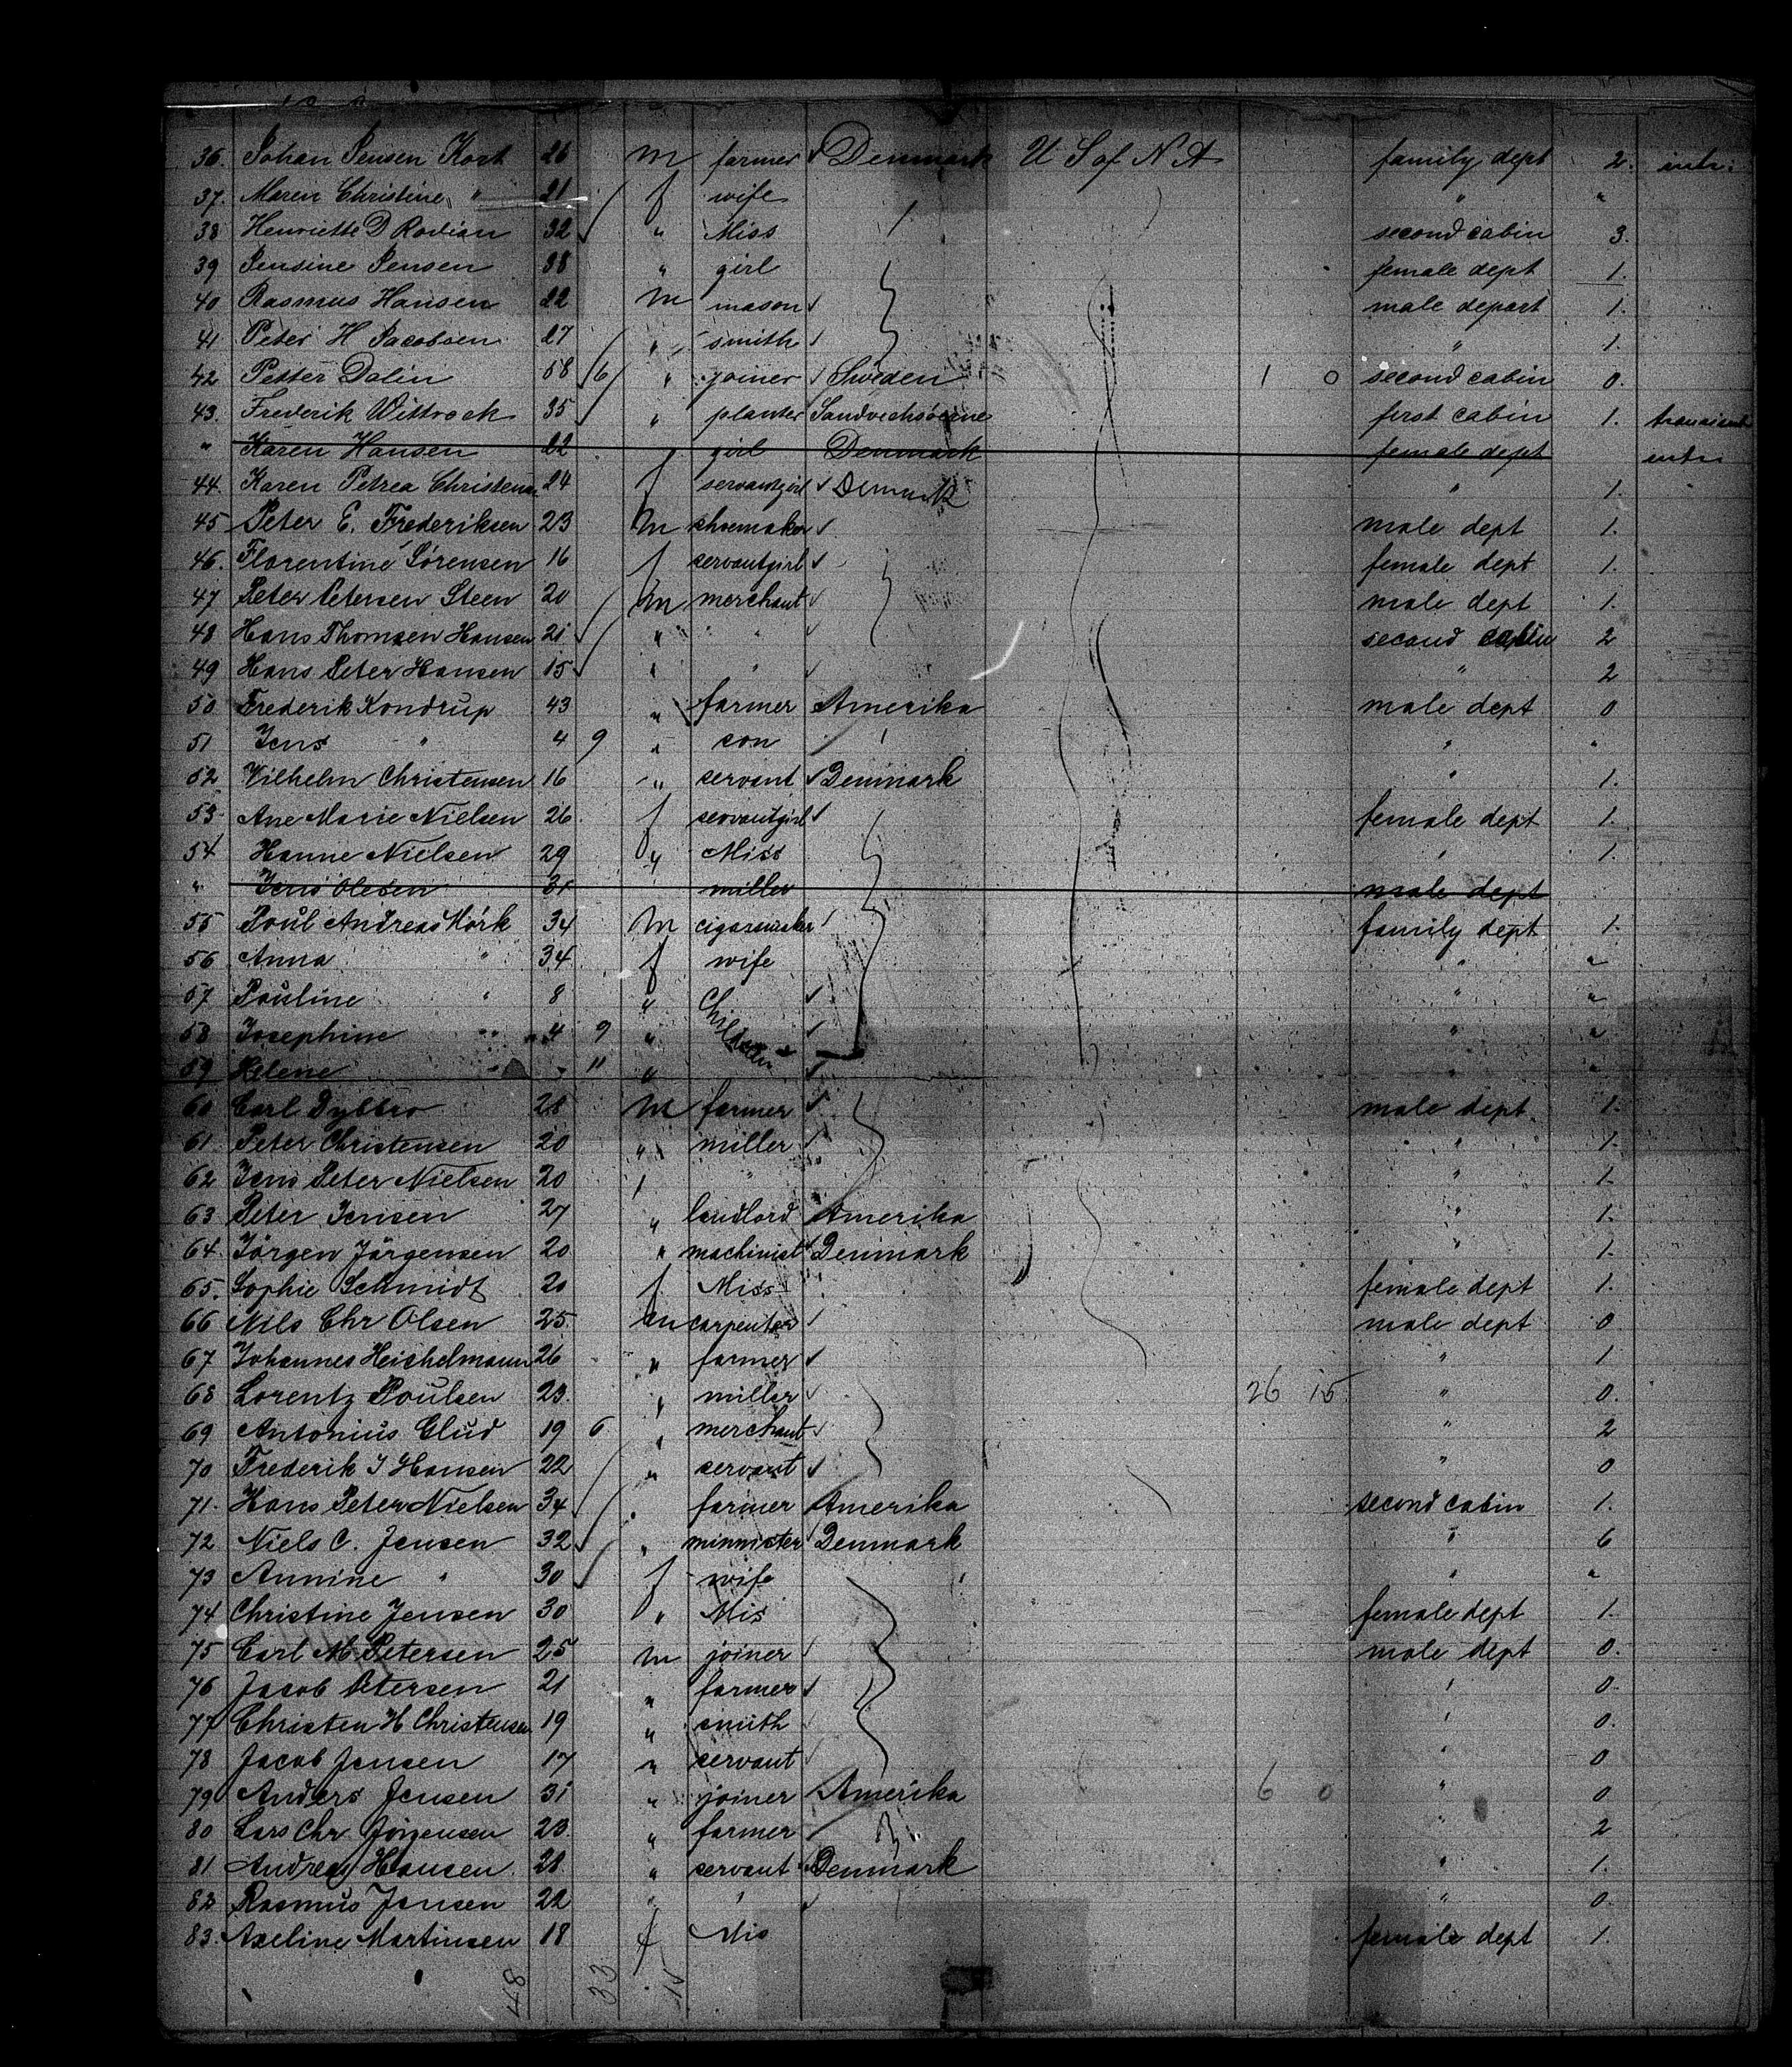 36. Johan Jensen Kort 26 m farmer Denmark U S of N A family dept 2. intr.
37. Maren Christine " 21 f wife " "
38. Henriette D Rovian 32 " Miss second cabin 3.
39 Jensine Jensen 38 " girl female dept 1.
40 Rasmus Hansen 22 m mason male depart 1.
41 Peter H Jacobsen 27 " smith " 1.
42 Petter Dalin 58 6 " joiner Sweden 1 0 second cabin 0.
43. Frederik Wittrock 35 " planter Sandvichsöerne first cabin 1.
" Karen Hansen 22 girl Denmark female dept intr
44. Karen Petrea Christensen 24 f servantgirl Denmark " 1.
45 Peter E. Frederiksen 23 m shoemaker male dept 1.
46. Florentine Sørensen 16 f servantgirl female dept 1.
47 Peter Petersen Steen 20 m merchant male dept 1.
48 Hans Thomsen Hansen 21 " " second cabin 2
49 Hans Peter Hansen 15 " " " 2
50 Frederik Kondrup 43 " farmer Amerika male dept 0
51 Jens " 4 9 " son " " "
52 Vilhelm Christensen 16 " servant Denmark " 1.
53 Ane Marie Nielsen 26. f servantgirl female dept 1.
54 Hanne Nielsen 29 " Miss " 1.
" Jens Olesen 31 miller male dept
55 Poul Andreas Mörk 34 m cigarmaker family dept 1.
56 Anna " 34 f wife " "
57 Pauline " 8 " Children " "
58 Josephine " 4 9 " " "
59 Helene " " 11 " " "
60 Carl Dybbro 28 m farmer male dept 1.
61. Peter Christensen 20 " miller " 1.
62 Jens Peter Nielsen 20 " " " 1.
63 Peter Jensen 27 " landlord Amerika " 1.
64. Jörgen Jörgensen 20 " machinist Denmark " 1.
65. Sophie Schmidt 20 f Miss female dept 1.
66 Nils Chr Olsen 25. m carpenter male dept 0
67 Johannes Heichelmann 26 " farmer " 1
68 Lorentz Poulsen 23. " miller 26 15 " 0.
69 Antonius Glud 19 6 " merchant " 2
70 Frederik J Hansen 22 " servant " 0
71. Hans Peter Nielsen 34 " farmer Amerika second cabin 1.
72 Niels C. Jensen 32 " minnister Denmark " 6
73 Annine " 30 f wife " "
74 Christine Jensen 30 " Mis female dept 1.
75 Carl M. Petersen 25 m joiner male dept 0.
76 Jacob Petersen 21 " farmer " 0.
77 Christen H Christensen 19 " smith " 0.
78 Jacob Jensen 17 " servant " 0
79 Anders Jensen 31 " joiner Amerika 6 0 " 0
80 Lars Chr Jörgensen 23. " farmer " 2
81 Andreas Hansen 28 " servant Denmark " 1.
82 Rasmus Jensen 22 " " " 0.
83. Axeline Martinsen 18 f Mis female dept 1.
48 33 15